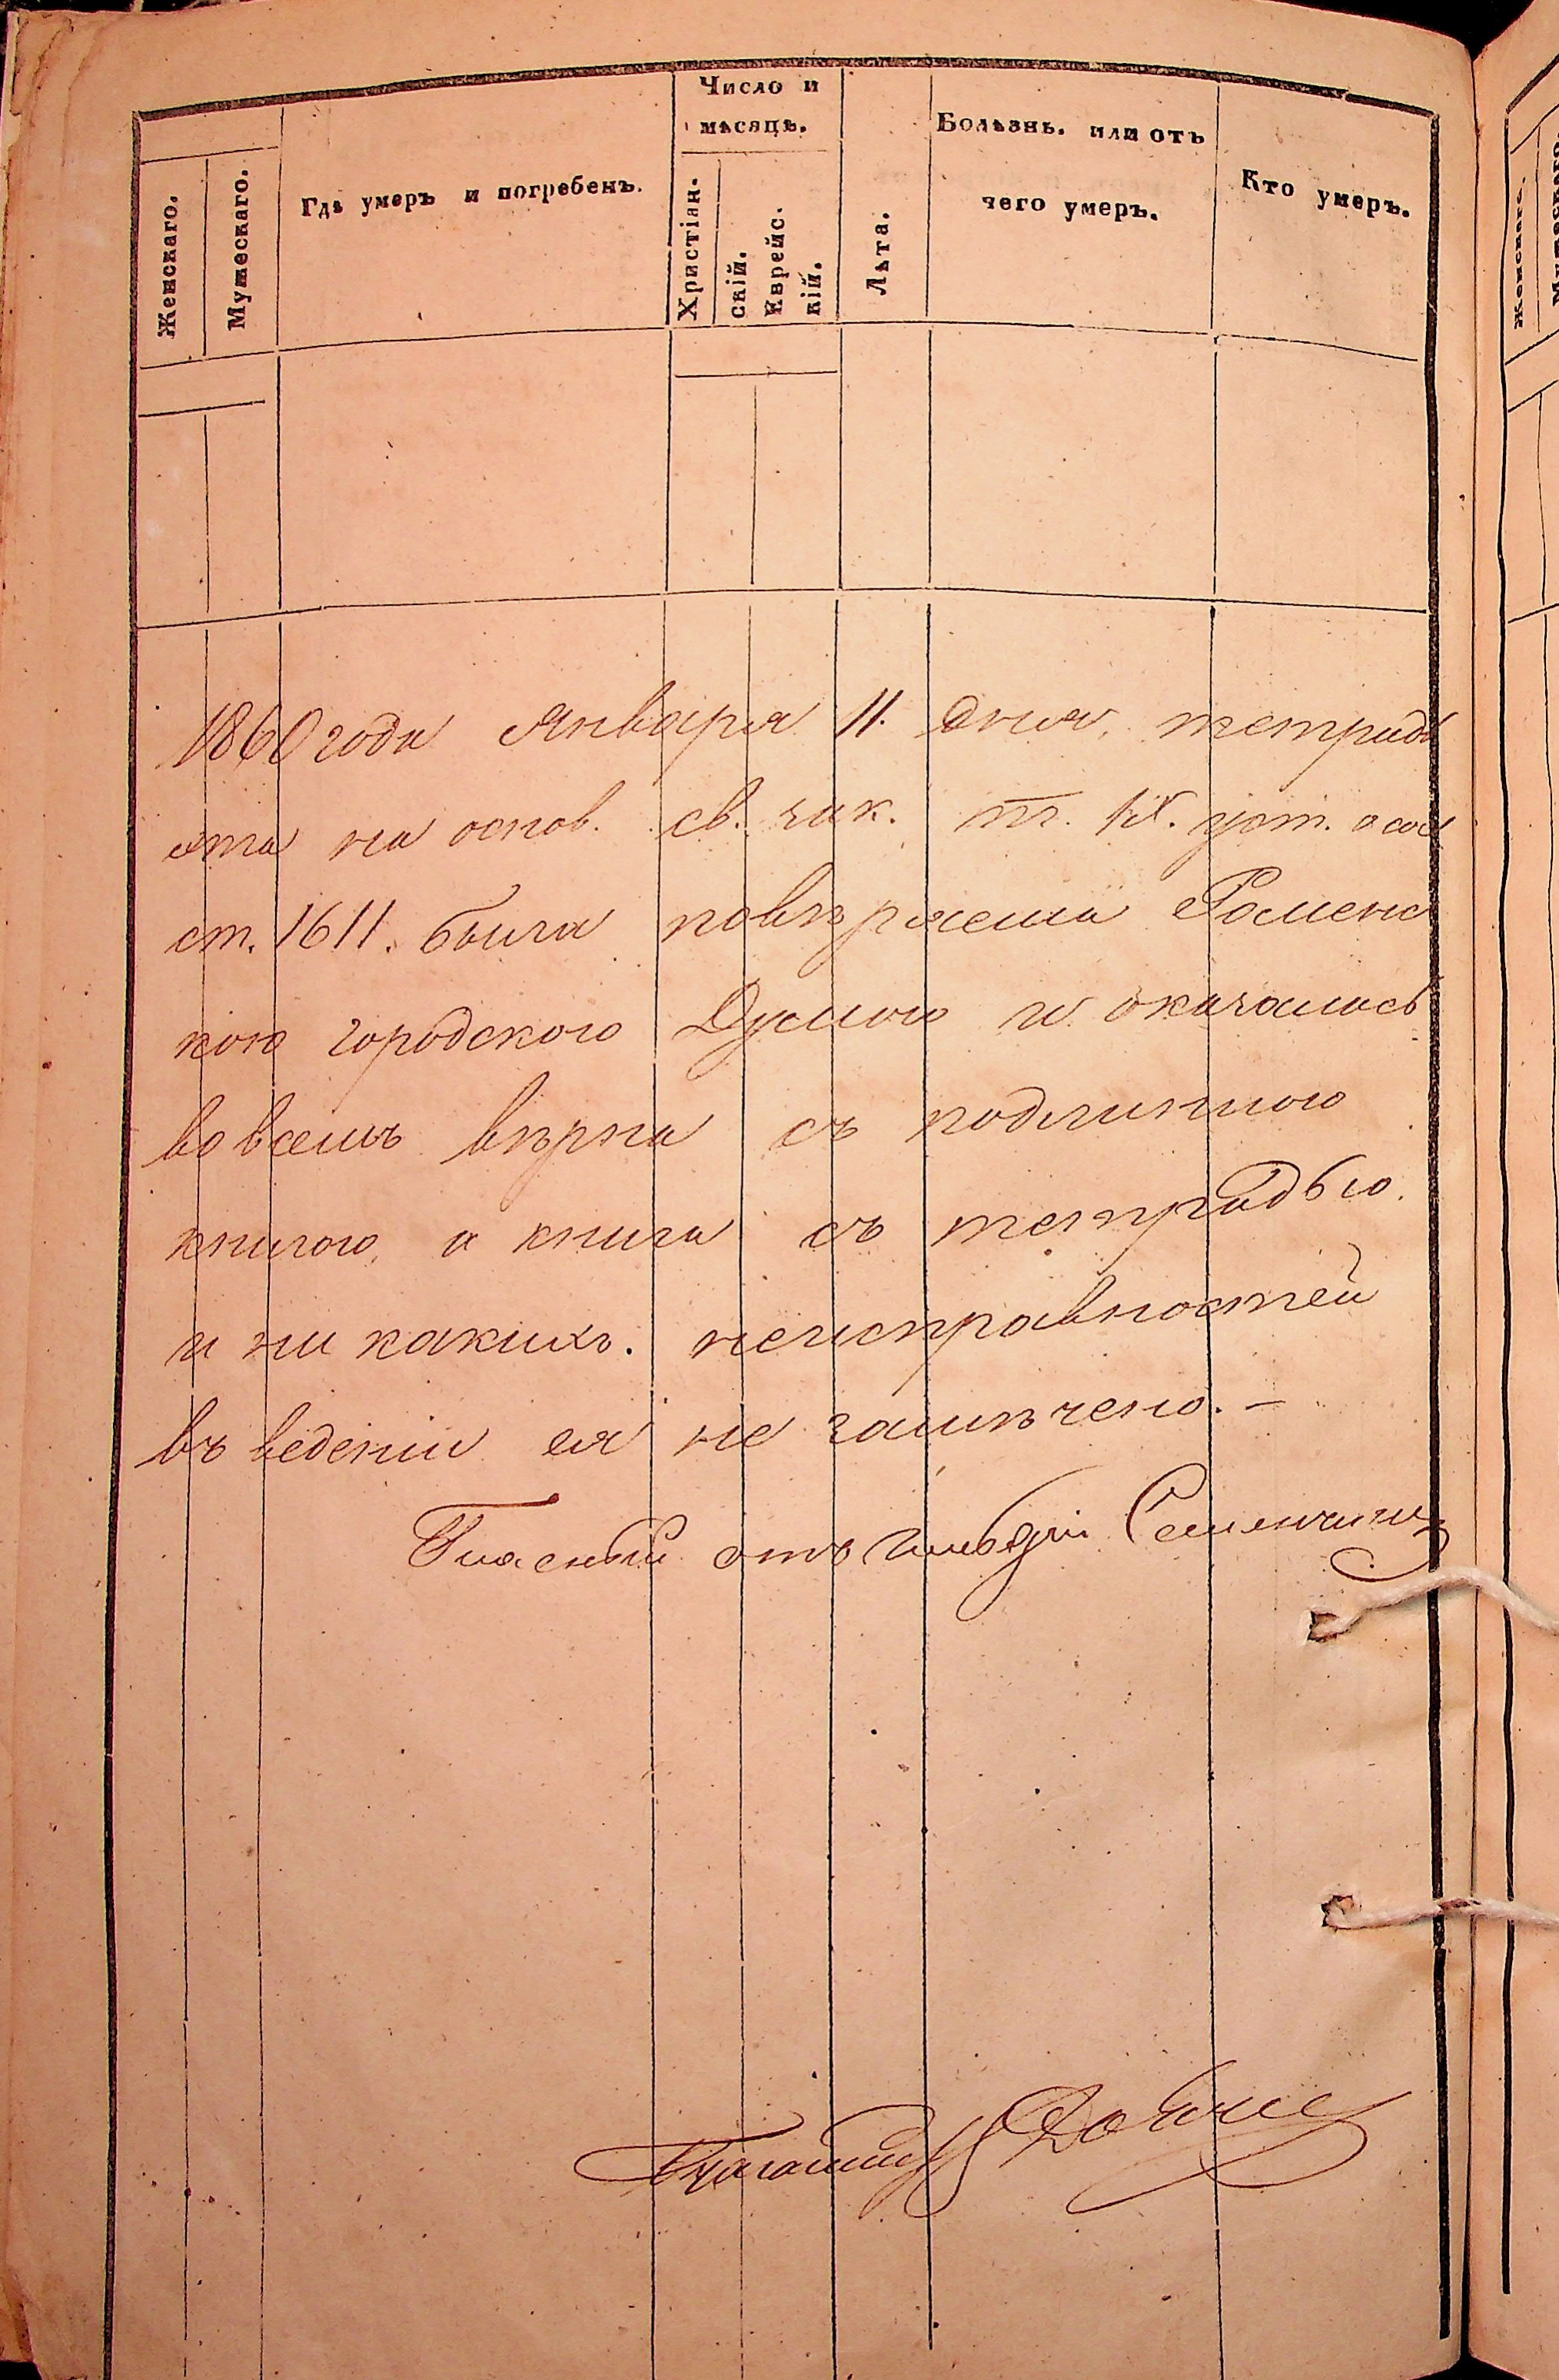 Женскаго.
Мужескаго.
Гдѣ умеръ и погребенъ.
Число и
мѣсяцъ.
Христіан-
скій.
Еврейс.
кій.
Лѣта.
Болѣзнь. или отъ
чего умеръ.
Кто умеръ.
1860 года Января 11. дня, тетрадь
эта на основ. св. зак. т. IX. уст. о сос
ст. 1611. была повѣряема Роменс
кою городского Думою и оказалась
во всемъ вѣрна съ подлинною
книгою, а книга съ тетрадью.
и ни какихъ. неисправностей
въ веденіи ея не замѣчено. —
Гласный отъ
Женскаго.
Мужескаго.